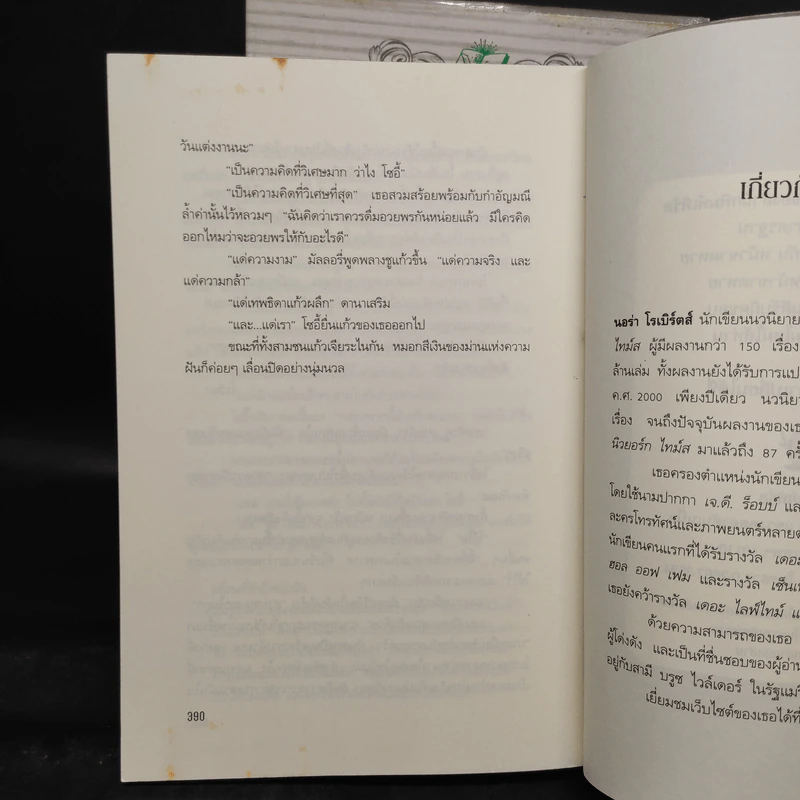 วันแต่งงานนะ"
"เป็นความคิดที่วิเศษมาก ว่าไง โซอี้"
"เป็นความคิดที่วิเศษที่สุด" เธอสวมสร้อยพร้อมกับกำอัญมณี
ล้ำค่านั้นไว้หลวมๆ "ฉันคิดว่าเราควรดื่มอวยพรกันหน่อยแล้ว มีใครคิด
ออกไหมว่าจะอวยพรให้กับอะไรดี"
"แด่ความงาม" มัลลอรี่พูดพลางชูแก้วขึ้น "แด่ความจริง และ
แด่ความกล้า"
"แด่เทพธิดาแก้วผลึก" ดานาเสริม
"และ...แด่เรา" โซอี้ยื่นแก้วของเธอออกไป
ขณะที่ทั้งสามชนแก้วเจียระไนกัน หมอกสีเงินของม่านแห่งความ
ฝันก็ค่อยๆ เลื่อนปิดอย่างนุ่มนวล
390
เกี่ยวกั
นอร่า โรเบิร์ตส์ นักเขียนนวนิยาย
ไทม์ส ผู้มีผลงานกว่า 150 เรื่อง
ล้านเล่ม ทั้งผลงานยังได้รับการแป
ค.ศ. 2000 เพียงปีเดียว นวนิย
เรื่อง จนถึงปัจจุบันผลงานของเธ
นิวยอร์ก ไทม์ส มาแล้วถึง 87 ครั้
เธอครองตำแหน่งนักเขียน
โดยใช้นามปากกา เจ.ดี. ร็อบบ์ แล
ละครโทรทัศน์และภาพยนตร์หลายต
นักเขียนคนแรกที่ได้รับรางวัล เดอะ
ฮอล ออฟ เฟม และรางวัล เซ็นเ
เธอยังคว้ารางวัล เดอะ ไลฟ์ไทม์ แ
ด้วยความสามารถของเธอ
ผู้โด่งดัง และเป็นที่ชื่นชอบของผู้อ่าน
อยู่กับสามี บรูซ ไวล์เดอร์ ในรัฐแมรี
เยี่ยมชมเว็บไซต์ของเธอได้ที่